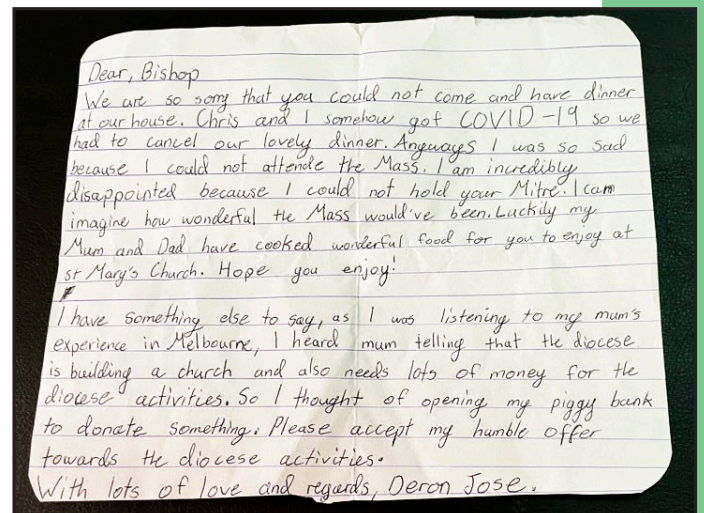 Dear, Bishop
We are so sorry that you could not come and have dinner
at our house. Chris and I somehow got COVID-19 so we
had to cancel our lovely dinner. Anyways I was so sad
because I could not attende the Mass. I am incredibly
disappointed because I could not hold your Mitre. I can
imagine how wonderful the Mass would've been. Luckily my
Mum and Dad have cooked wonderful food for you to enjoy at
st Mary's Church. Hope you enjoy!
I have something else to say, as I was listening to my mum's
experience in Melbourne, I heard mum telling that the diocese
is building a church and also needs lots of money for the
diocese activities. So I thought of opening my piggy bank
to donate something. Please accept my humble offer
towards the diocese activities.
With lots of love and regards, Deron Jose.